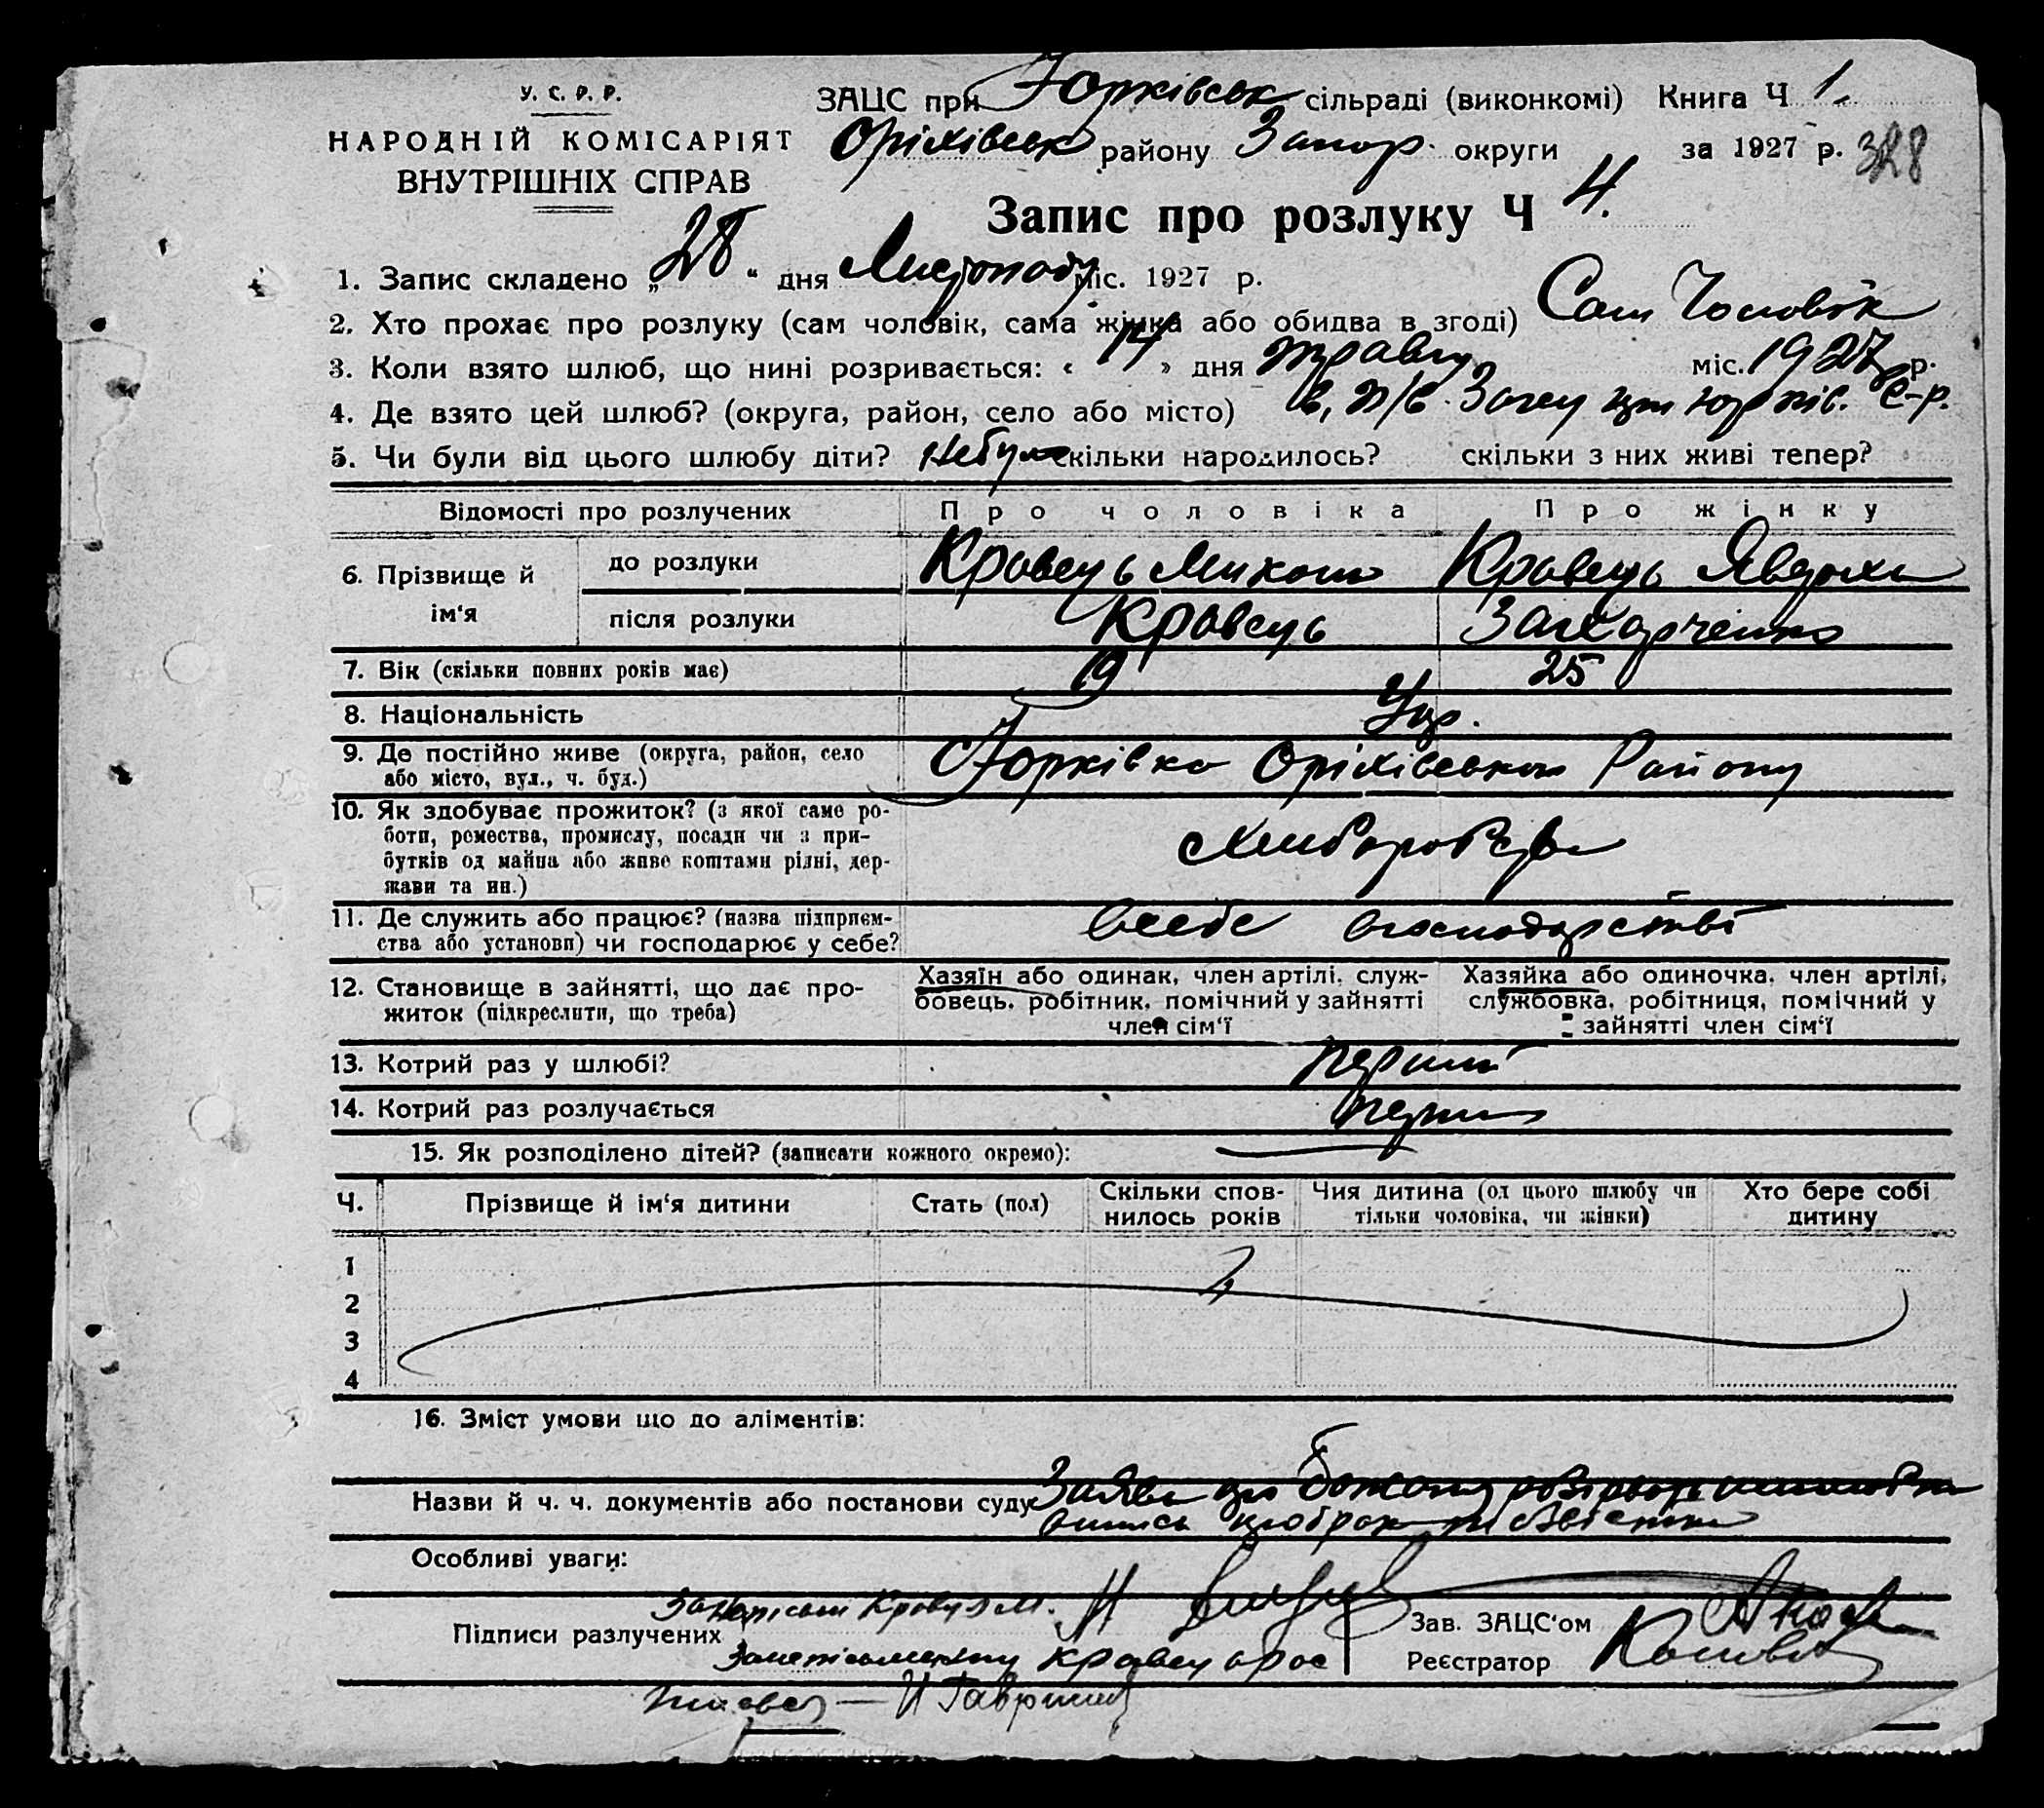 У. С. Р. Р.
НАРОДНІЙ КОМІСАРІЯТ
ВНУТРІШНІХ СПРАВ
ЗАЦС при Юрківськ сільраді (виконкомі) Книга Ч 1.
Оріхівськ району Запор. округи за 1927 р. 328
Запис про розлуку Ч 4.
1. Запис складено „28" дня Листопаду міс. 1927 р.
2. Хто прохає про розлуку (сам чоловік, сама жінка або обидва в згоді) Сам Чоловік
3. Коли взято шлюб, що нині розривається: « 14 » дня травня міс. 1927 р.
4. Де взято цей шлюб? (округа, район, село або місто) в, п/в. Загсу при Юрків. С-р.
5. Чи були від цього шлюбу діти? Небуло скільки народилось? скільки з них живі тепер?
Відомості про розлучених Про чоловіка Про жінку
6. Прізвище й ім‘я
до розлуки Кравець Микола Кравець Явдоха
після розлуки Кравець Захарченко
7. Вік (скільки повних років має) 19 25
8. Національність Укр.
9. Де постійно живе (округа, район, село
або місто, вул., ч. буд.) Юрківка Оріхівського Району
10. Як здобуває прожиток? (з якої саме ро-
боти, ремества, промислу, посади чи з при-
бутків од майна або живе коштами рідні, дер-
жави та ин.) Хліборобство
11. Де служить або працює? (назва підприєм-
ства або установи) чи господарює у себе? всебе вгосподарстві
12. Становище в зайнятті, що дає про-
житок (підкреслити, що треба)
Хазяїн або одинак, член артілі, служ-
бовець, робітник, помічний у зайнятті
член сім‘ї
Хазяйка або одиночка, член артілі,
службовка, робітниця, помічний у
зайнятті член сім‘ї
13. Котрий раз у шлюбі? перший
14. Котрий раз розлучається перший
15. Як розподілено дітей? (записати кожного окремо):
Ч. Прізвище й ім‘я дитини Стать (пол) Скільки спов-
нилось років Чия дитина (од цього шлюбу чи
тільки чоловіка, чи жінки) Хто бере собі
дитину
1
2
3
4
16. Зміст умови що до аліментів:
Назви й ч. ч. документів або постанови суду: Заява
Особливі уваги:
Підписи разлучених
Зав. ЗАЦС‘ом
Реєстратор